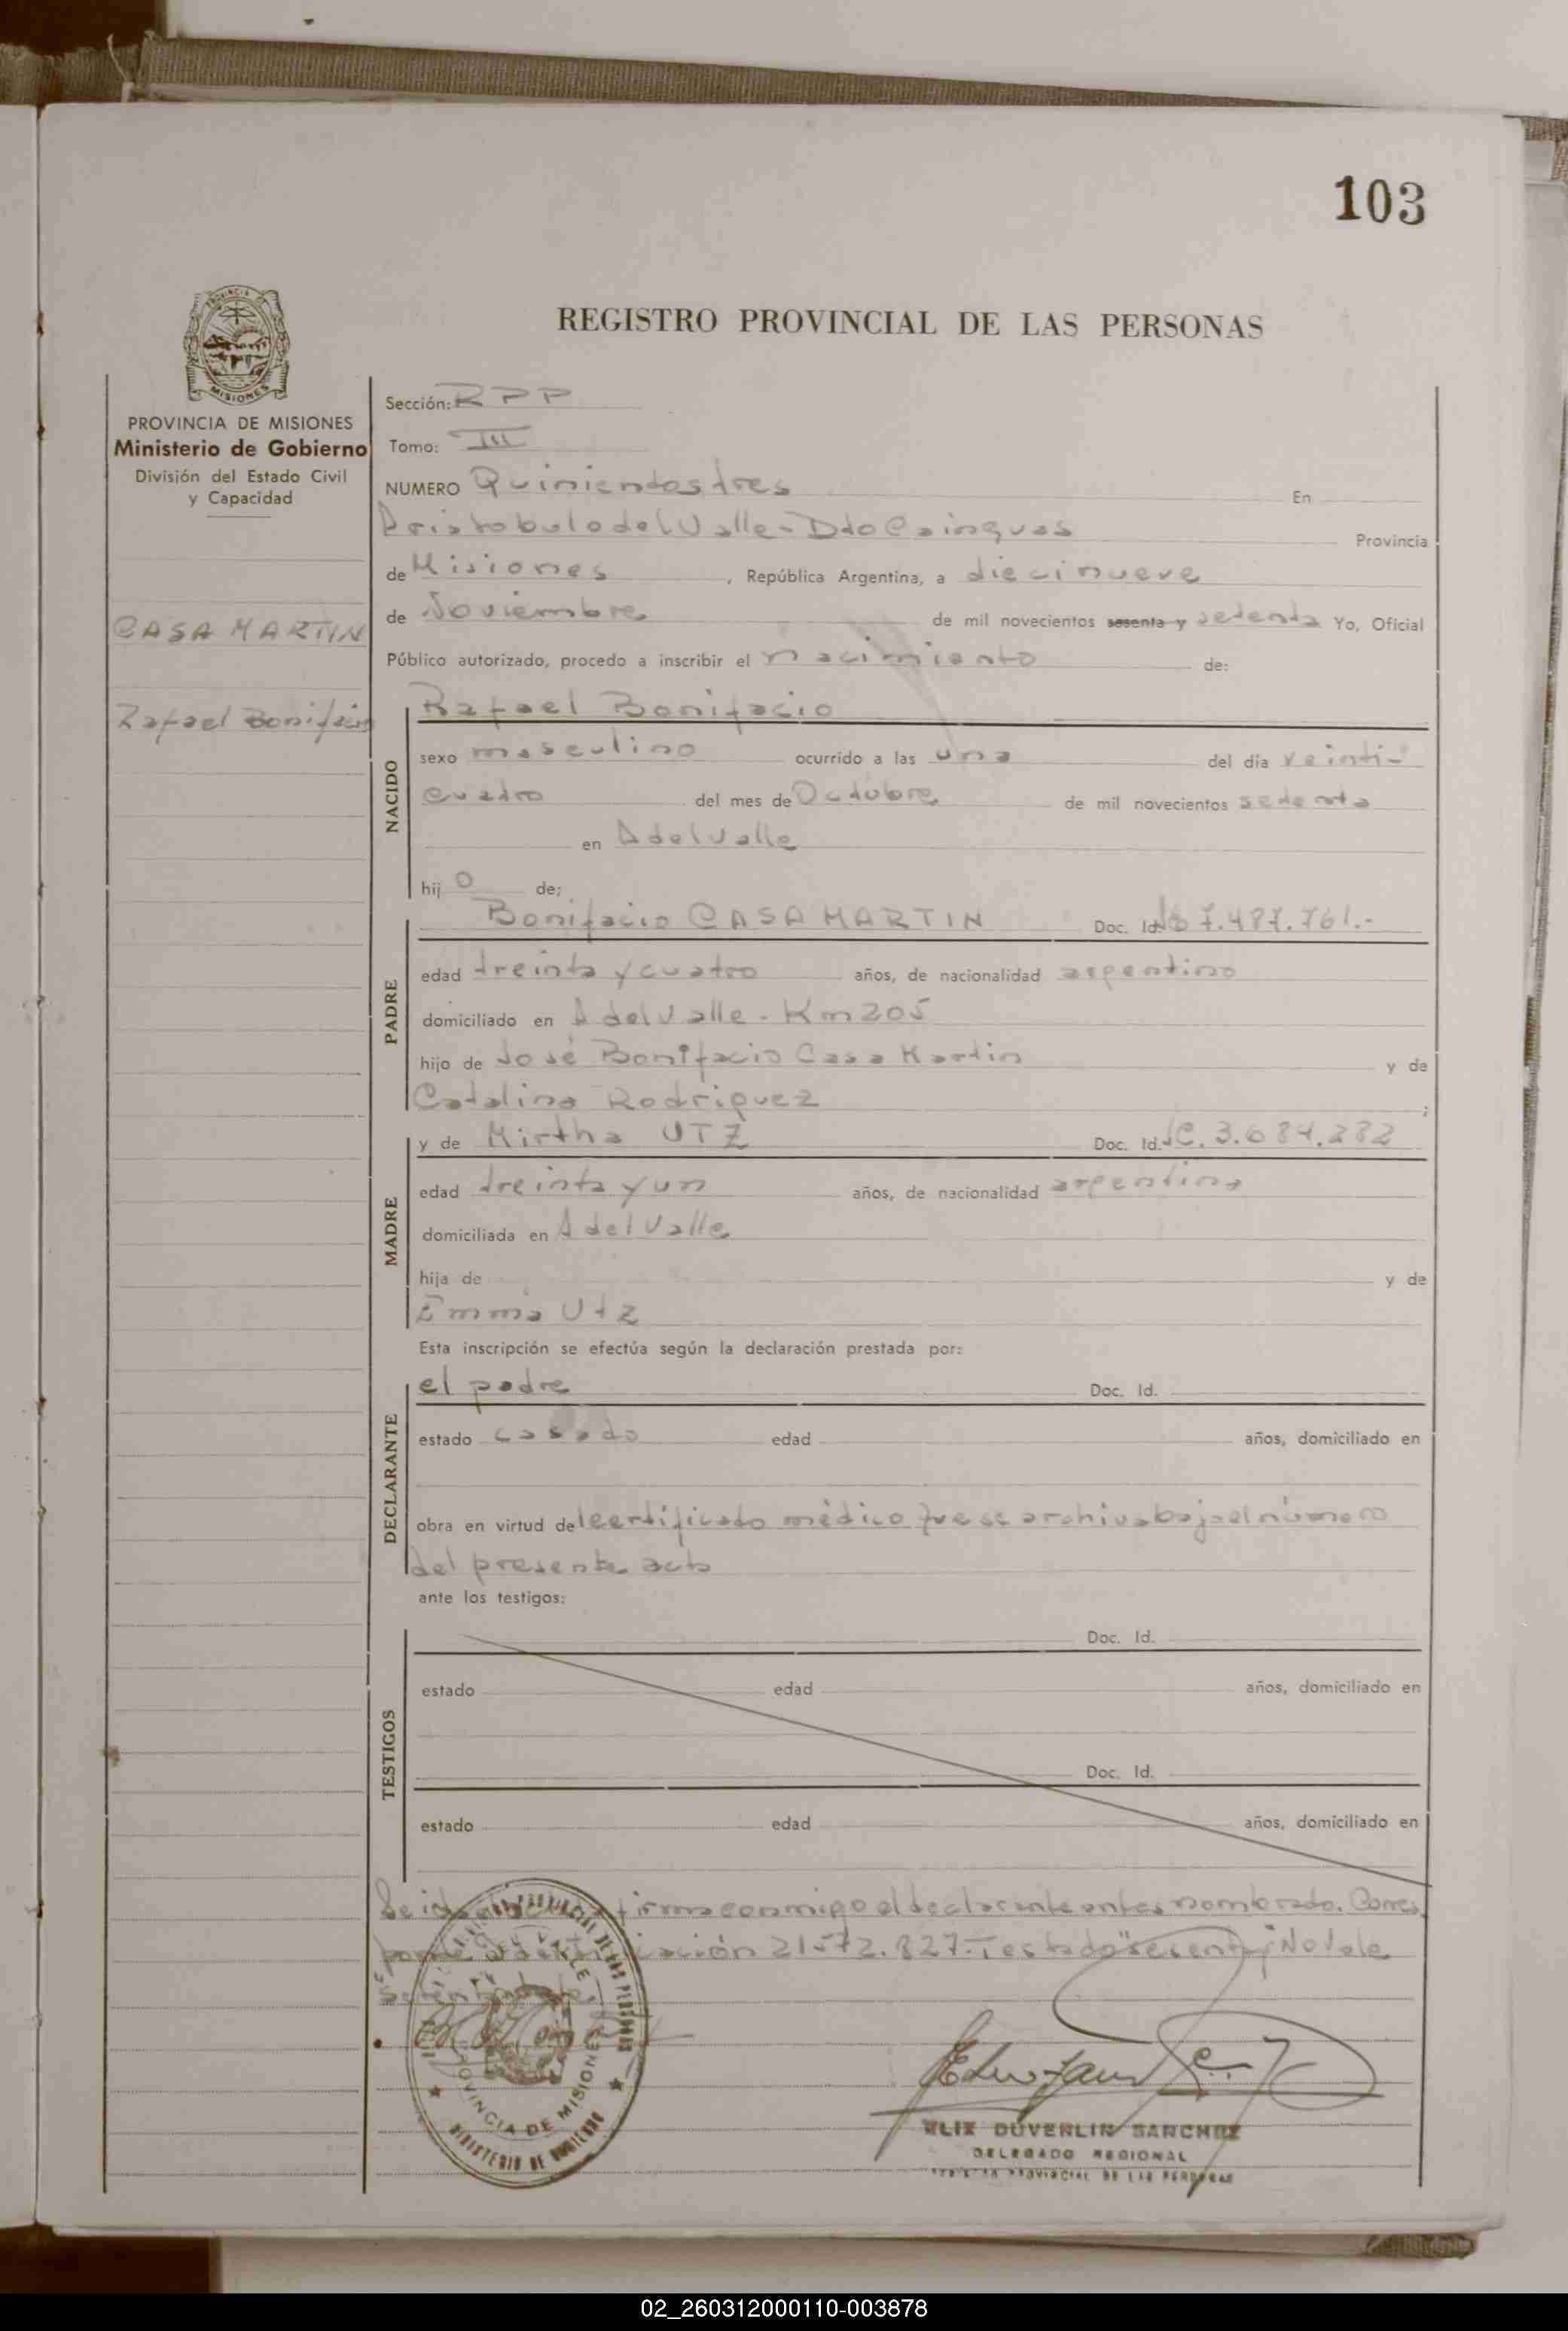 103
REGISTRO PROVINCIAL DE LAS PERSONAS
MISIONES
PROVINCIA DE MISIONES
Ministerio de Gobierno
División del Estado Civil
y Capacidad
CASA MARTIN
Rafael Bonifacio
Sección: RPP
Tomo: III
NUMERO Quinientos tres En
Aristobulo del Valle - Dto Cainguas Provincia
de Misiones, República Argentina, a diecinueve
de Noviembre de mil novecientos sesenta y setenta Yo, Oficial
Público autorizado, procedo a inscribir el nacimiento de:
NACIDO
Rafael Bonifacio
sexo masculino ocurrido a las una del día veinti-
cuatro del mes de Octubre de mil novecientos setenta
en A del Valle
hij o de;
PADRE
Bonifacio CASA MARTIN Doc. Id. 7.487.761.-
edad treinta y cuatro años, de nacionalidad argentino
domiciliado en A del Valle - Km 205
hijo de José Bonifacio Casa Martin y de
Catalina Rodriguez ;
MADRE
y de Mirtha UTZ Doc. Id. LC. 3.684.282
edad treinta y un años, de nacionalidad argentina
domiciliada en A del Valle
hija de y de
Emma Utz
Esta inscripción se efectúa según la declaración prestada por:
DECLARANTE
el padre Doc. Id.
estado casado edad años, domiciliado en
obra en virtud del certificado médico que se archiva bajo el número
del presente acta
ante los testigos:
TESTIGOS
Doc. Id.
estado edad años, domiciliado en
Doc. Id.
estado edad años, domiciliado en
firma conmigo el declarante antes nombrado. Corres
21572.827.- Testado "sesenta y" No Vale
PROVINCIA DE MISIONES
MINISTERIO DE GOBIERNO
DUVERLIN SANCHEZ
DELEGADO REGIONAL
PROVINCIAL DE LAS PERSONAS
02_260312000110-003878